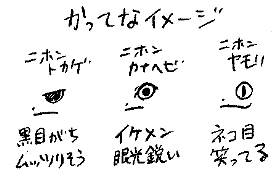 かってなイメージ
ニホン
トカゲ
ニホン
カナヘビ
ニホン
ヤモリ
黒目がち
ムッツリそう
イケメン
眼光鋭い
ネコ目
笑ってる